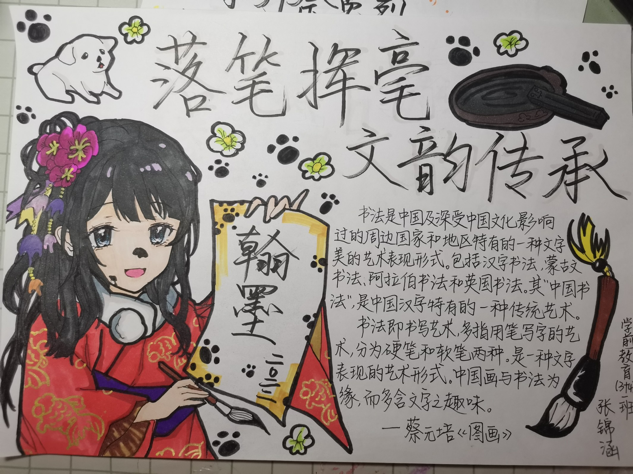 落笔挥毫
文韵传承
书法是中国及深受中国文化影响
过的周边国家和地区特有的一种文字
美的艺术表现形式。包括汉字书法,蒙古
书法、阿拉伯书法和英国书法。其"中国书
法",是中国汉字特有的一种传统艺术。
书法即书写艺术,多指用笔写字的艺
术,分为硬笔和软笔两种。是一种文字
表现的艺术形式。中国画与书法为
缘,而多含文字之趣味。
—蔡元培《图画》
翰墨
二〇二一
学前教育
班
张锦涵